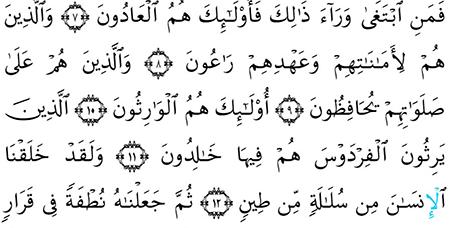 فَمَنِ ٱبْتَغَىٰ وَرَآءَ ذَٰلِكَ فَأُو۟لَـٰٓئِكَ هُمُ ٱلْعَادُونَ ﴿٧﴾ وَٱلَّذِينَ
هُمْ لِأَمَـٰنَـٰتِهِمْ وَعَهْدِهِمْ رَٰعُونَ ﴿٨﴾ وَٱلَّذِينَ هُمْ عَلَىٰ
صَلَوَٰتِهِمْ يُحَافِظُونَ ﴿٩﴾ أُو۟لَـٰٓئِكَ هُمُ ٱلْوَٰرِثُونَ ﴿١٠﴾ ٱلَّذِينَ
يَرِثُونَ ٱلْفِرْدَوْسَ هُمْ فِيهَا خَـٰلِدُونَ ﴿١١﴾ وَلَقَدْ خَلَقْنَا
ٱلْإِنسَـٰنَ مِن سُلَـٰلَةٍ مِّن طِينٍ ﴿١٢﴾ ثُمَّ جَعَلْنَـٰهُ نُطْفَةً فِى قَرَارٍ